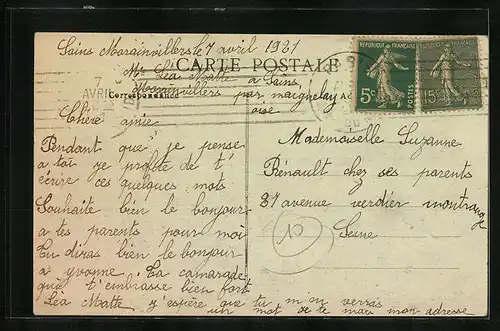 Sains Morainvillers le 7 avril 1921
Mlle Léa Matte à Sains
CARTE POSTALE
Morainvillers par maignelay
Correspondance
oise
REPUBLIQUE FRANÇAISE
5c
POSTES
15c
AVRIL
Chère amie
Pendant que je pense
a toi je profite de t'
écrire ces quelques mots
Souhaite bien le bonjour
a tes parents pour moi
Tu diras bien le bonjour
a yvonne. Ta camarade
que t'embrasse bien fort
Léa Matte j'espère que tu m'en verras
un mot je te mais mon adresse
Mademoiselle Suzanne
Rénault chez ses parents
81 avenue verdier montrouge
Seine
10